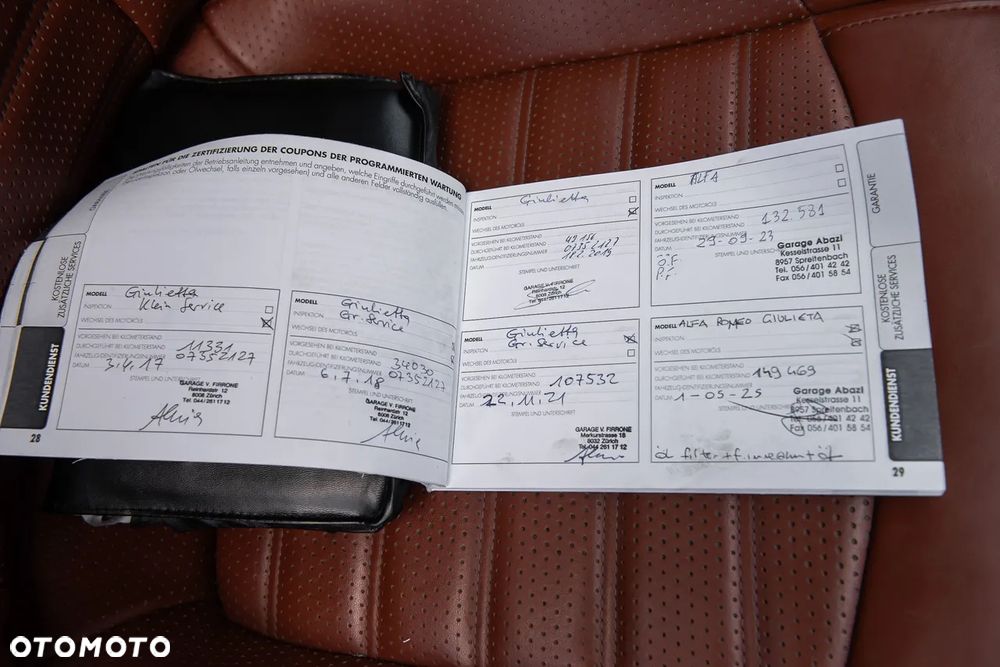 FÜR DIE ZERTIFIZIERUNG DER COUPONS DER PROGRAMMIERTEN WARTUNG
der Betriebsanleitung entnehmen und angeben, welche Eingriffe durchgeführt werden
oder Ölwechsel, falls einzeln vorgesehen) und alle anderen Felder vollständig ausfüllen.
KOSTENLOSE
ZUSÄTZLICHE SERVICES
KUNDENDIENST
28
MODELL Giulietta
Klein Service
INSPEKTION
WECHSEL DES MOTORÖLS
VORGESEHEN BEI KILOMETERSTAND
DURCHGEFÜHRT BEI KILOMETERSTAND 11331
FAHRZEUG-IDENTIFIZIERUNGSNUMMER 07352127
DATUM 3.4.17
STEMPEL UND UNTERSCHRIFT
GARAGE V. FIRRONE
Reinhardstr. 12
8008 Zürich
Tel. 044/261 17 12
MODELL Giulietta
Gr. Service
INSPEKTION
WECHSEL DES MOTORÖLS
VORGESEHEN BEI KILOMETERSTAND
DURCHGEFÜHRT BEI KILOMETERSTAND 34030
FAHRZEUG-IDENTIFIZIERUNGSNUMMER 07352127
DATUM 6.7.18
STEMPEL UND UNTERSCHRIFT
GARAGE V. FIRRONE
Reinhardstr. 12
8008 Zürich
Tel. 044/261 17 12
MODELL Giulietta
INSPEKTION
WECHSEL DES MOTORÖLS
VORGESEHEN BEI KILOMETERSTAND
DURCHGEFÜHRT BEI KILOMETERSTAND 49156
FAHRZEUG-IDENTIFIZIERUNGSNUMMER 07352127
DATUM
STEMPEL UND UNTERSCHRIFT
GARAGE V. FIRRONE
Reinhardstr. 12
8008 Zürich
Tel. 044/261 17 12
MODELL Giulietta
Gr. Service
INSPEKTION
WECHSEL DES MOTORÖLS
VORGESEHEN BEI KILOMETERSTAND
DURCHGEFÜHRT BEI KILOMETERSTAND 107532
FAHRZEUG-IDENTIFIZIERUNGSNUMMER
DATUM 22.11.21
STEMPEL UND UNTERSCHRIFT
GARAGE V. FIRRONE
Merkurstrasse 18
8032 Zürich
Tel. 044 261 17 12
MODELL ALFA
INSPEKTION
WECHSEL DES MOTORÖLS
VORGESEHEN BEI KILOMETERSTAND
DURCHGEFÜHRT BEI KILOMETERSTAND 132.581
FAHRZEUG-IDENTIFIZIERUNGSNUMMER
DATUM 29-09-23
Ö.F.
P.F.
STEMPEL UND UNTERSCHRIFT
Garage Abazi
Kesselstrasse 11
8957 Spreitenbach
Tel. 056/401 42 42
Fax 056/401 58 54
MODELL ALFA ROMEO GIULIETA
INSPEKTION
WECHSEL DES MOTORÖLS
VORGESEHEN BEI KILOMETERSTAND
DURCHGEFÜHRT BEI KILOMETERSTAND 149469
FAHRZEUG-IDENTIFIZIERUNGSNUMMER
DATUM 1-05-25
STEMPEL UND UNTERSCHRIFT
Garage Abazi
Kesselstrasse 11
8957 Spreitenbach
Tel. 056/401 42 42
Fax 056/401 58 54
GARANTIE
KOSTENLOSE
ZUSÄTZLICHE SERVICES
KUNDENDIENST
29
OTOMOTO